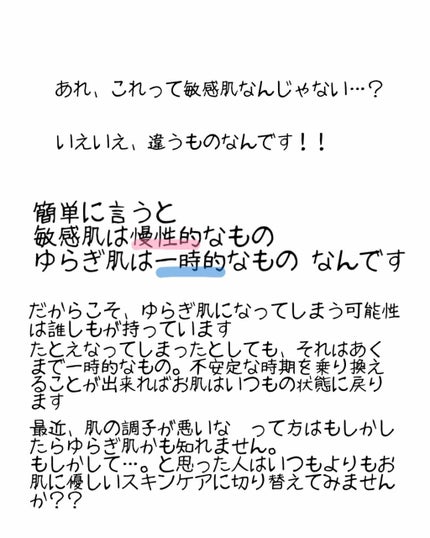 あれ、これって敏感肌なんじゃない…？
いえいえ、違うものなんです！！
簡単に言うと
敏感肌は慢性的なもの
ゆらぎ肌は一時的なもの なんです
だからこそ、ゆらぎ肌になってしまう可能性
は誰しもが持っています
たとえなってしまったとしても、それはあく
まで一時的なもの。不安定な時期を乗り換え
ることが出来ればお肌はいつもの状態に戻り
ます
最近、肌の調子が悪いな　って方はもしかし
たらゆらぎ肌かも知れません。
もしかして…。と思った人はいつもよりもお
肌に優しいスキンケアに切り替えてみません
か？？